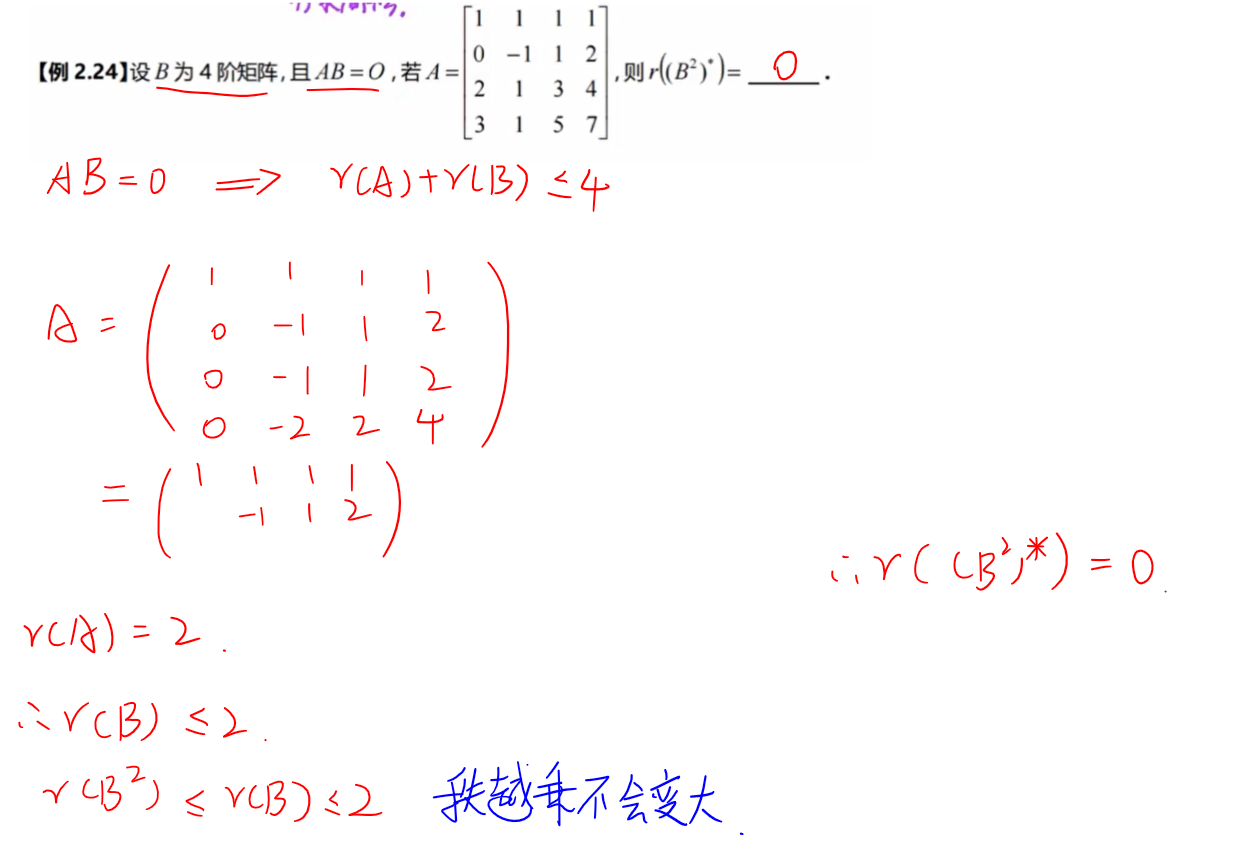 【例 2.24】设 B 为 4 阶矩阵,且 AB=O,若 A=[1 1 1 1; 0 -1 1 2; 2 1 3 4; 3 1 5 7],则 r((B²)*)= 0 .
AB=0 ⟹ r(A)+r(B)≤4
A =
1 1 1 1
0 -1 1 2
0 -1 1 2
0 -2 2 4
=
1 1 1 1
-1 1 2
∴r((B²)*)=0.
r(A)=2.
∴r(B)≤2.
r(B²)≤r(B)≤2 秩越乘不会变大.